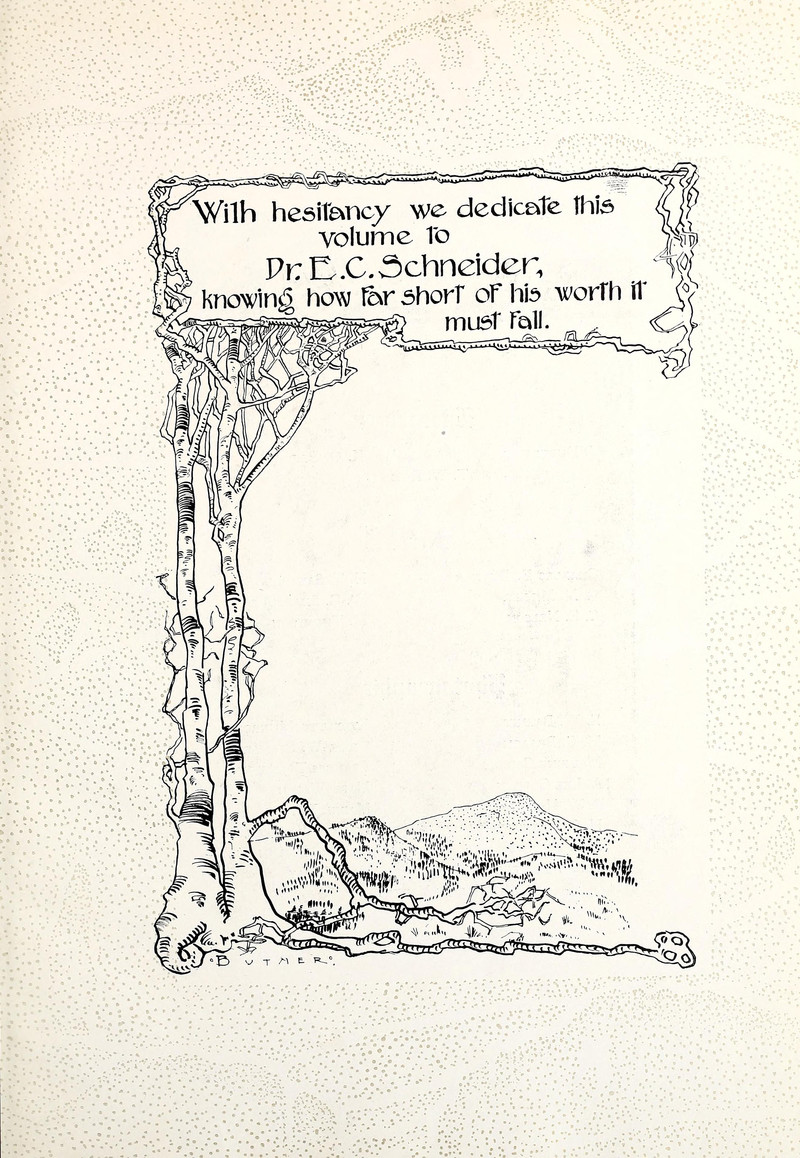 With hesitancy we dedicate this
volume to
Dr. E. C. Schneider,
knowing how far short of his worth it
must fall.
BUTMER